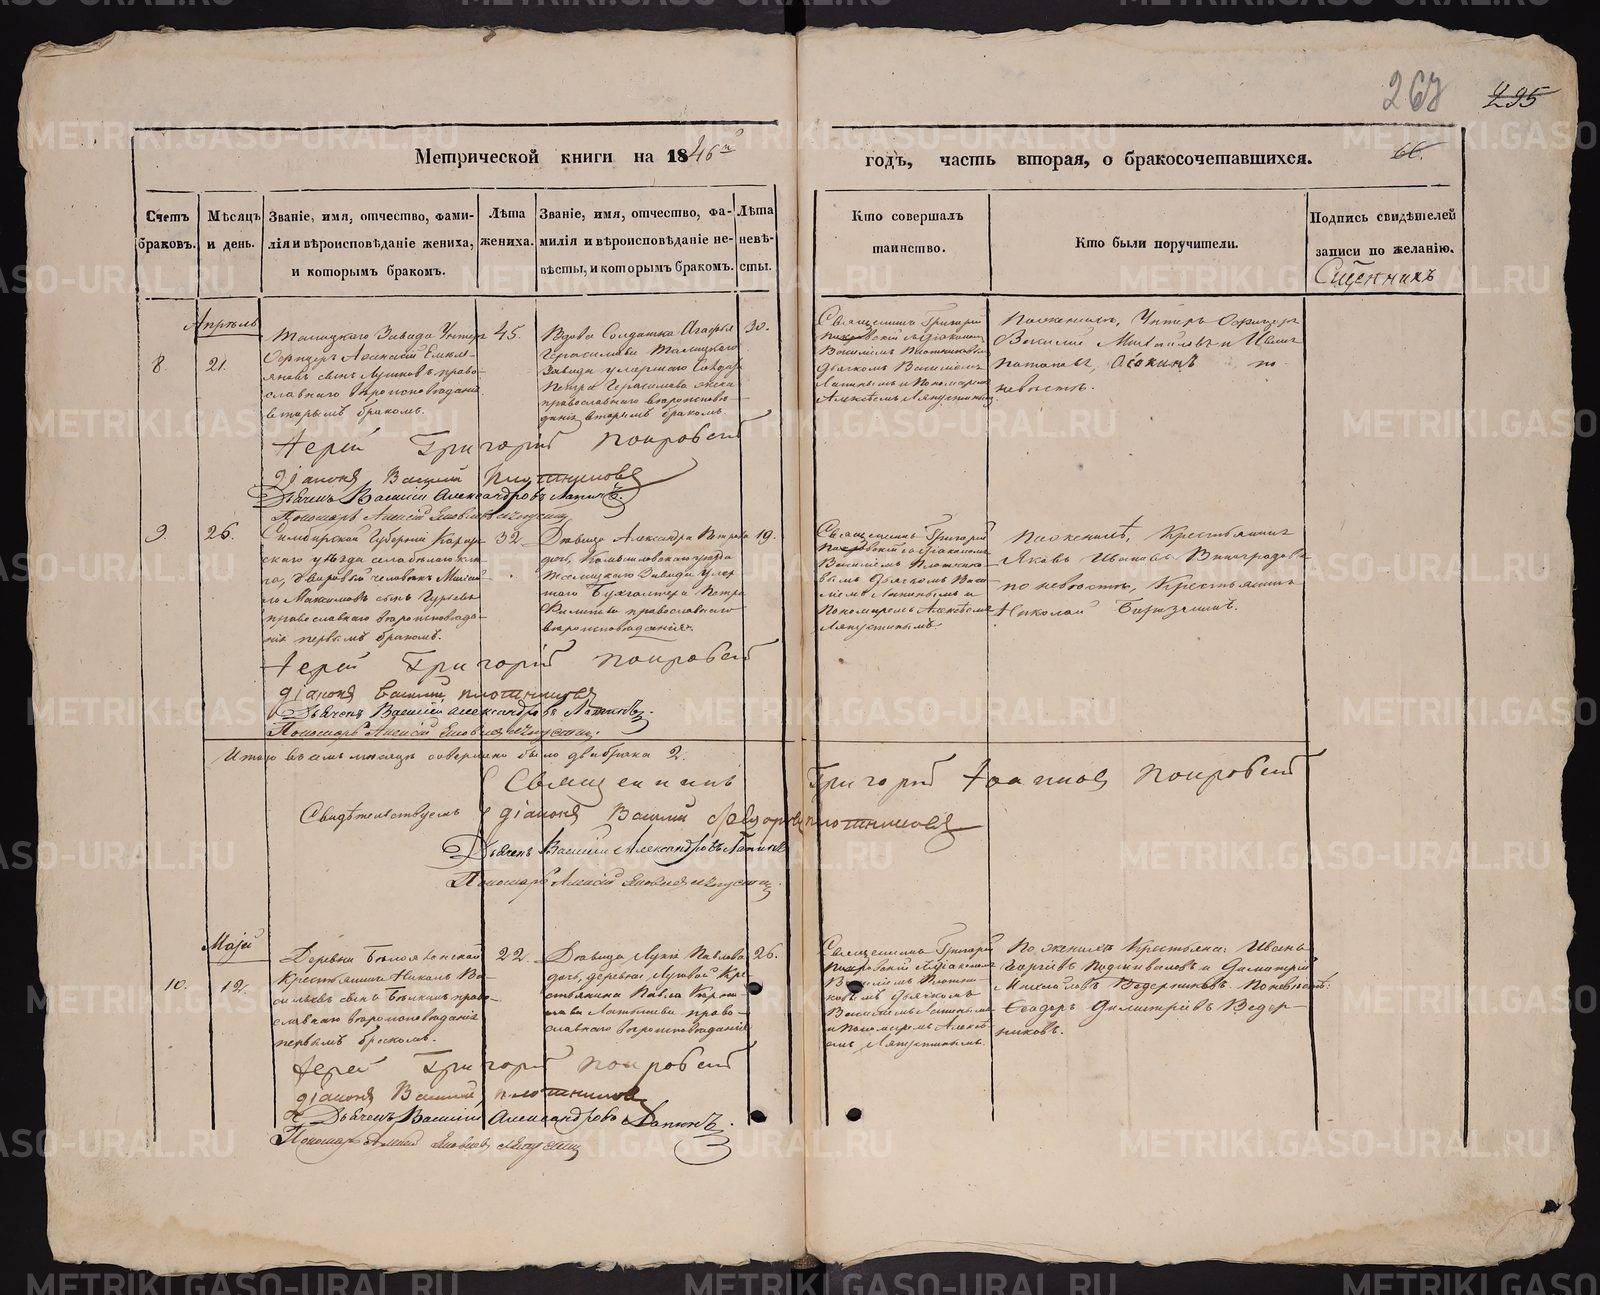 268 295
Метрической книги на 1846й годъ, часть вторая, о бракосочетавшихся. 66.
Счетъ браковъ.
Мѣсяцъ и день.
Званіе, имя, отчество, фами-
лія и вѣроисповѣданіе жениха,
и которымъ бракомъ.
Лѣта
жениха.
Званіе, имя, отчество, фа-
милія и вѣроисповѣданіе не-
вѣсты, и которымъ бракомъ.
Лѣта
невѣ-
сты.
Кто совершалъ
таинство.
Кто были поручители.
Подпись свидѣтелей
записи по желанію.
Апрѣль
8
21.
Талицкаго Завода Унтер
Офицеръ
славнаго вѣроисповѣданія
вторымъ бракомъ.
45.
Вдова Солдатка Агафья
Герасимова Талицкаго
Завода умершаго
Петра Герасимова жена
православнаго вѣроисповѣ-
данія вторымъ бракомъ.
30.
Священникъ Григорій
Покровскій съ Діакономъ
Василіемъ Плотниковымъ
Дьячкомъ Василіемъ
Лапинымъ и Пономаремъ
Алексѣемъ Ляпустинымъ
По женихѣ, Унтеръ Офицеръ
Василій Михайловъ и Иванъ
Потаповъ, Осокинъ по
невѣстѣ.
Іерей Григорій Покровскій
Діаконъ Василій Плотниковъ
Дьячекъ Василій Александровъ Лапинъ.
Пономарь Алексій Яковлевъ Ляпустинъ
9.
26.
Симбирской Губерніи
скаго уѣзда
дворовый человѣкъ
Максимовъ сынъ Гурьевъ
православнаго вѣроисповѣда-
нія первымъ бракомъ.
32.
Дѣвица Александра Петрова
дочь, Камышловскаго уѣзда
Талицкаго Завода умер
шаго Бухгалтера Петра
православнаго
вѣроисповѣданія.
19.
Священникъ Григорій
Покровскій съ Діакономъ
Василіемъ Плотнико-
вымъ Дьячкомъ Васи-
ліемъ Лапинымъ и
Пономаремъ Алексѣемъ
Ляпустинымъ
По женихѣ, Крестьянинъ
Яковъ Ивановъ Виноградовъ
по невѣстѣ, Крестьянинъ
Николай
Іерей Григорій Покровскій
Діаконъ Василій Плотниковъ
Дьячекъ Василій Александровъ Лапинъ.
Пономарь Алексій Яковлевъ Ляпустинъ.
Итого въ семъ мѣсяцѣ совершено было два брака 2.
Священникъ Григорій Іоанновъ Покровскій
Свидѣтельствуемъ Діаконъ Василій Ѳедоровъ Плотниковъ
Дьячекъ Василій Александровъ Лапинъ
Пономарь Алексій Яковлевъ Ляпустинъ.
Маій
10.
12.
Деревни
Крестьянинъ
сильевъ сынъ право-
славнаго вѣроисповѣданія
первымъ бракомъ.
22.
Дѣвица Павлова
дочь, деревни, Луговой Кре-
стьянина Павла
право-
славнаго вѣроисповѣданія
26.
Священникъ Григорій
Покровскій съ Діакономъ
Василіемъ Плотни-
ковымъ Дьячкомъ
Василіемъ Лапинымъ
и Пономаремъ Алексѣ-
емъ Ляпустинымъ.
По женихѣ Крестьяна: Иванъ
и Димитрій
Михайловъ Ведерниковъ. По невѣстѣ:
Ѳеодоръ Димитріевъ Ведер-
никовъ.
Іерей Григорій Покровскій
Діаконъ Василій Плотниковъ
Дьячекъ Василій Александровъ Лапинъ.
Пономарь Алексій Яковлевъ Ляпустинъ
METRIKI.GASO-URAL.RU